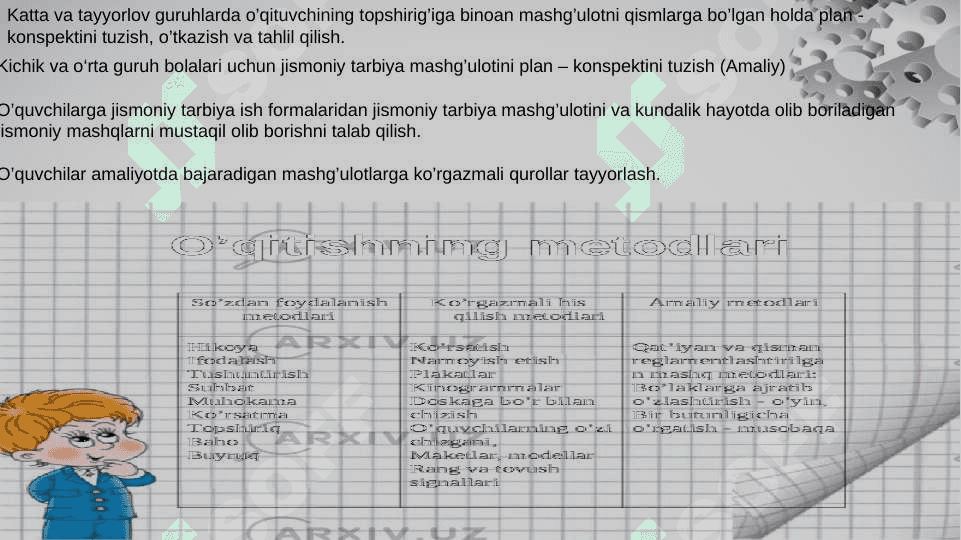 Katta va tayyorlov guruhlarda o’qituvchining topshirig’iga binoan mashg’ulotni qismlarga bo’lgan holda plan -
konspektini tuzish, o’tkazish va tahlil qilish.
Kichik va o‘rta guruh bolalari uchun jismoniy tarbiya mashg’ulotini plan – konspektini tuzish (Amaliy)
O’quvchilarga jismoniy tarbiya ish formalaridan jismoniy tarbiya mashg’ulotini va kundalik hayotda olib boriladigan
ismoniy mashqlarni mustaqil olib borishni talab qilish.
O’quvchilar amaliyotda bajaradigan mashg’ulotlarga ko’rgazmali qurollar tayyorlash.
O’qitishning metodlari
So’zdan foydalanish
metodlari
Ko’rgazmali his
qilish metodlari
Amaliy metodlari
Hikoya
Ifodalash
Tushuntirish
Suhbat
Muhokama
Ko’rsatma
Topshiriq
Baho
Buyruq
Ko’rsatish
Namoyish etish
Plakatlar
Kinogrammalar
Doskaga bo’r bilan
chizish
O’quvchilarning o’zi
chizgani,
Maketlar, modellar
Rang va tovush
signallari
Qat’iyan va qisman
reglamentlashtirilga
n mashq metodlari:
Bo’laklarga ajratib
o’zlashtirish - o’yin,
Bir butunligicha
o’rgatish - musobaqa
ARXIV.UZ
ARXIV
ARXIV.UZ